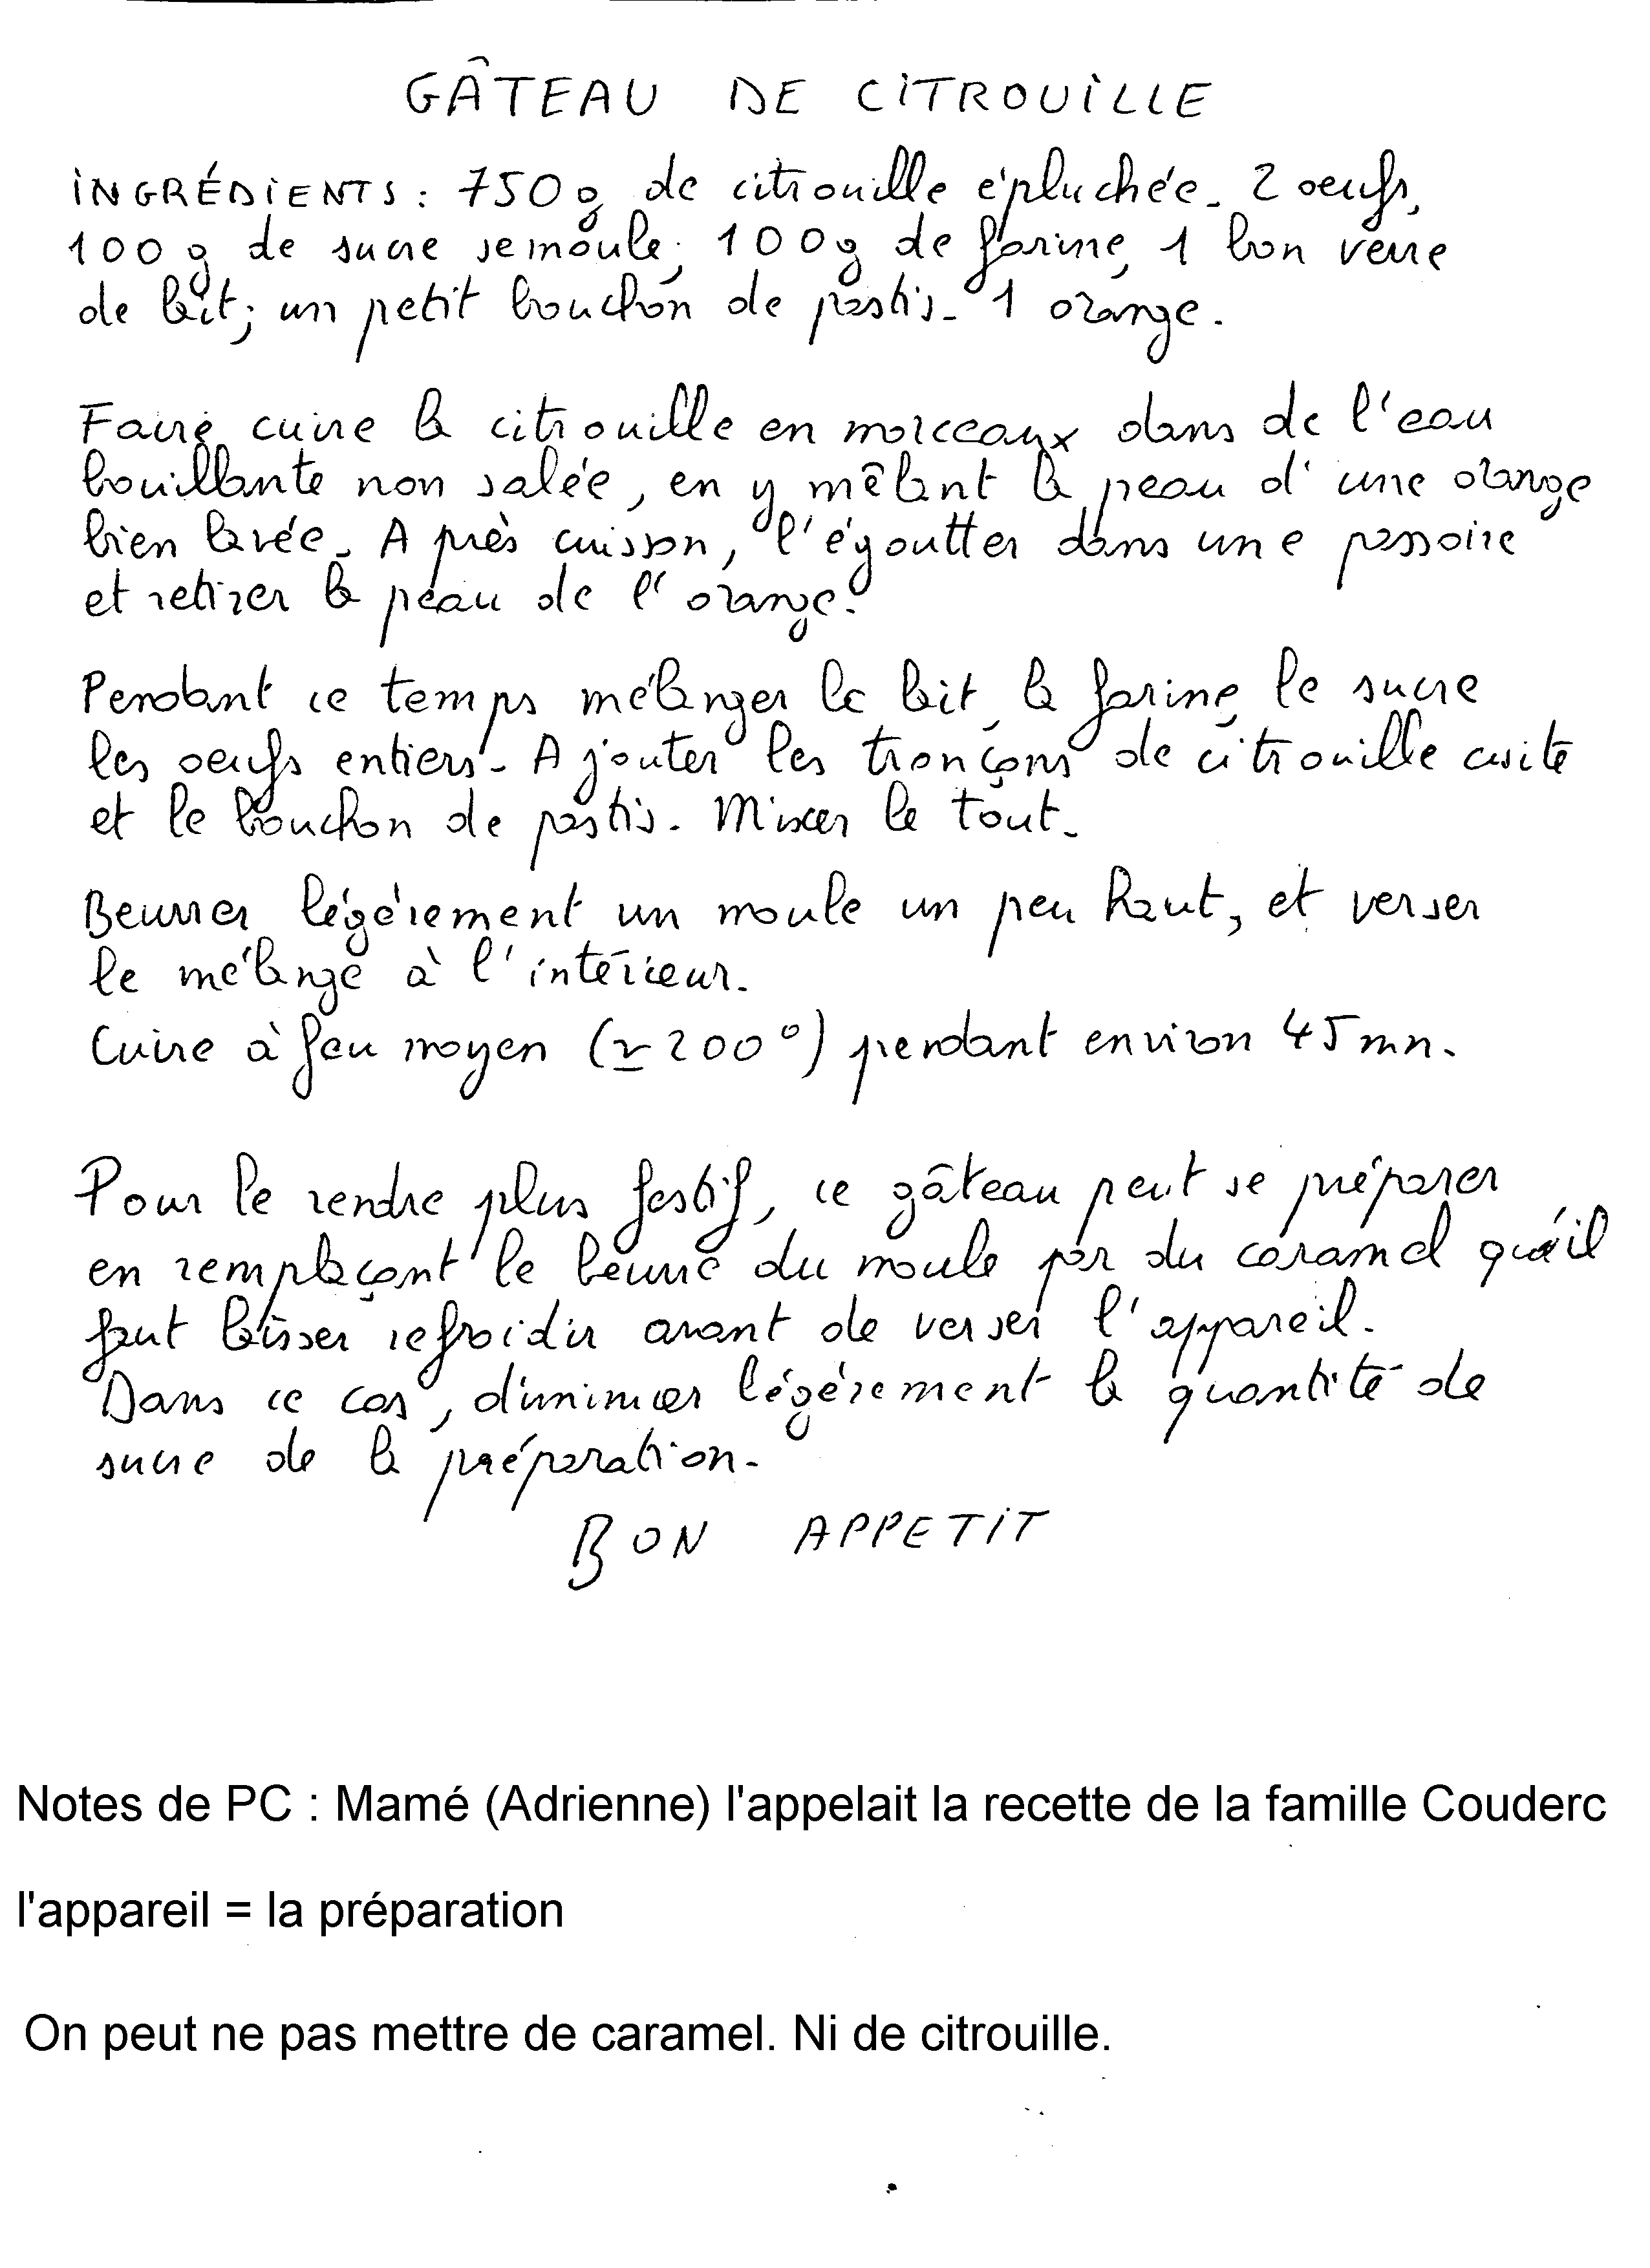 GÂTEAU DE CITROUILLE
INGRÉDIENTS : 750 g de citrouille épluchée. 2 oeufs,
100 g de sucre semoule, 100g de farine, 1 bon verre
de lait; un petit bouchon de pastis. 1 orange.
Faire cuire la citrouille en morceaux dans de l'eau
bouillante non salée, en y mêlant la peau d'une orange
bien lavée. Après cuisson, l'égoutter dans une passoire
et retirer la peau de l'orange.
Pendant ce temps mélanger le lait, la farine, le sucre
les oeufs entiers. Ajouter les tronçons de citrouille cuite
et le bouchon de pastis. Mixer le tout.
Beurrer légèrement un moule un peu haut, et verser
le mélange à l'intérieur.
Cuire à feu moyen (≃ 200°) pendant environ 45 mn.
Pour le rendre plus festif, ce gâteau peut se préparer
en remplaçant le beurre du moule par du caramel qu'il
faut laisser refroidir avant de verser l'appareil.
Dans ce cas, diminuer légèrement la quantité de
sucre de la préparation.
BON APPETIT
Notes de PC : Mamé (Adrienne) l'appelait la recette de la famille Couderc
l'appareil = la préparation
On peut ne pas mettre de caramel. Ni de citrouille.